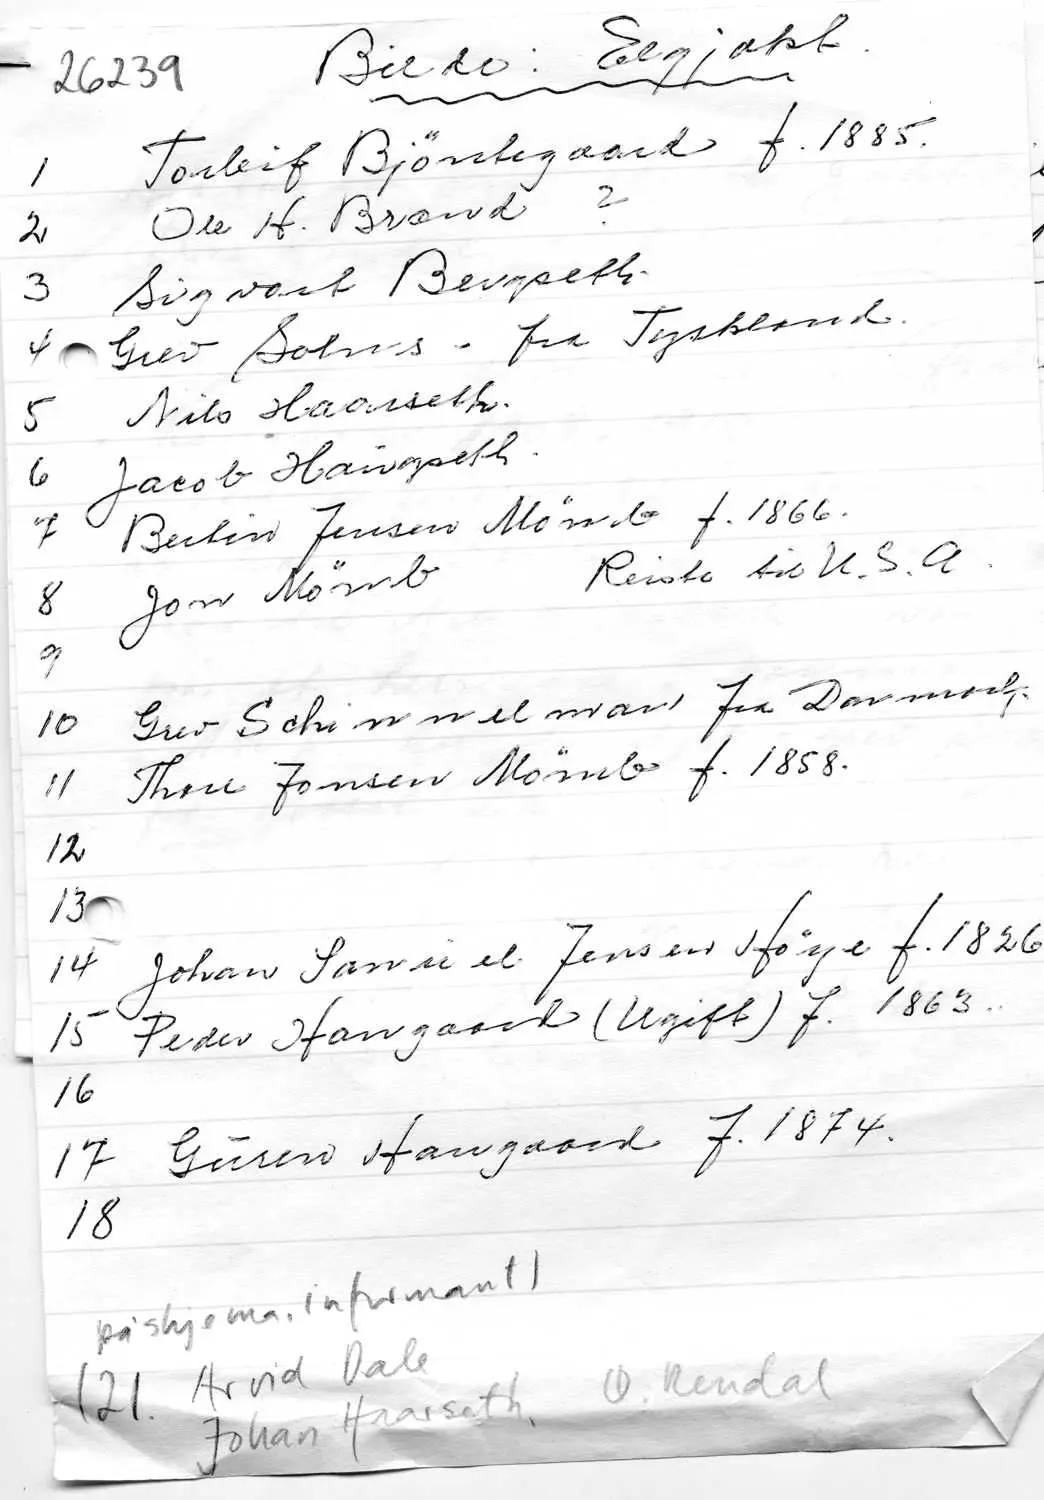 26239
Bilde: Elgjakt.
1 Torleif Björntegaard f. 1885.
2 Ole H. Brænd ?
3 Sigvart Bergseth.
4 Grev Solms - fra Tyskland.
5 Nils Haarseth.
6 Jacob Haugseth.
7 Bertin Jensen Mömb f. 1866.
8 Jon Mömb Reiste til U.S.A.
9
10 Grev Schimmelman fra Danmark.
11 Thore Jonsen Mömb f. 1858.
12
13
14 Johan Samuel Jensen Höye f. 1826
15 Peder Haugaard (Ugift) f. 1863.
16
17 Guren Haugaard f. 1874.
18
på skjema. informant 1
121. Arvid Dale
Johan Haarseth, Ø. Rendal